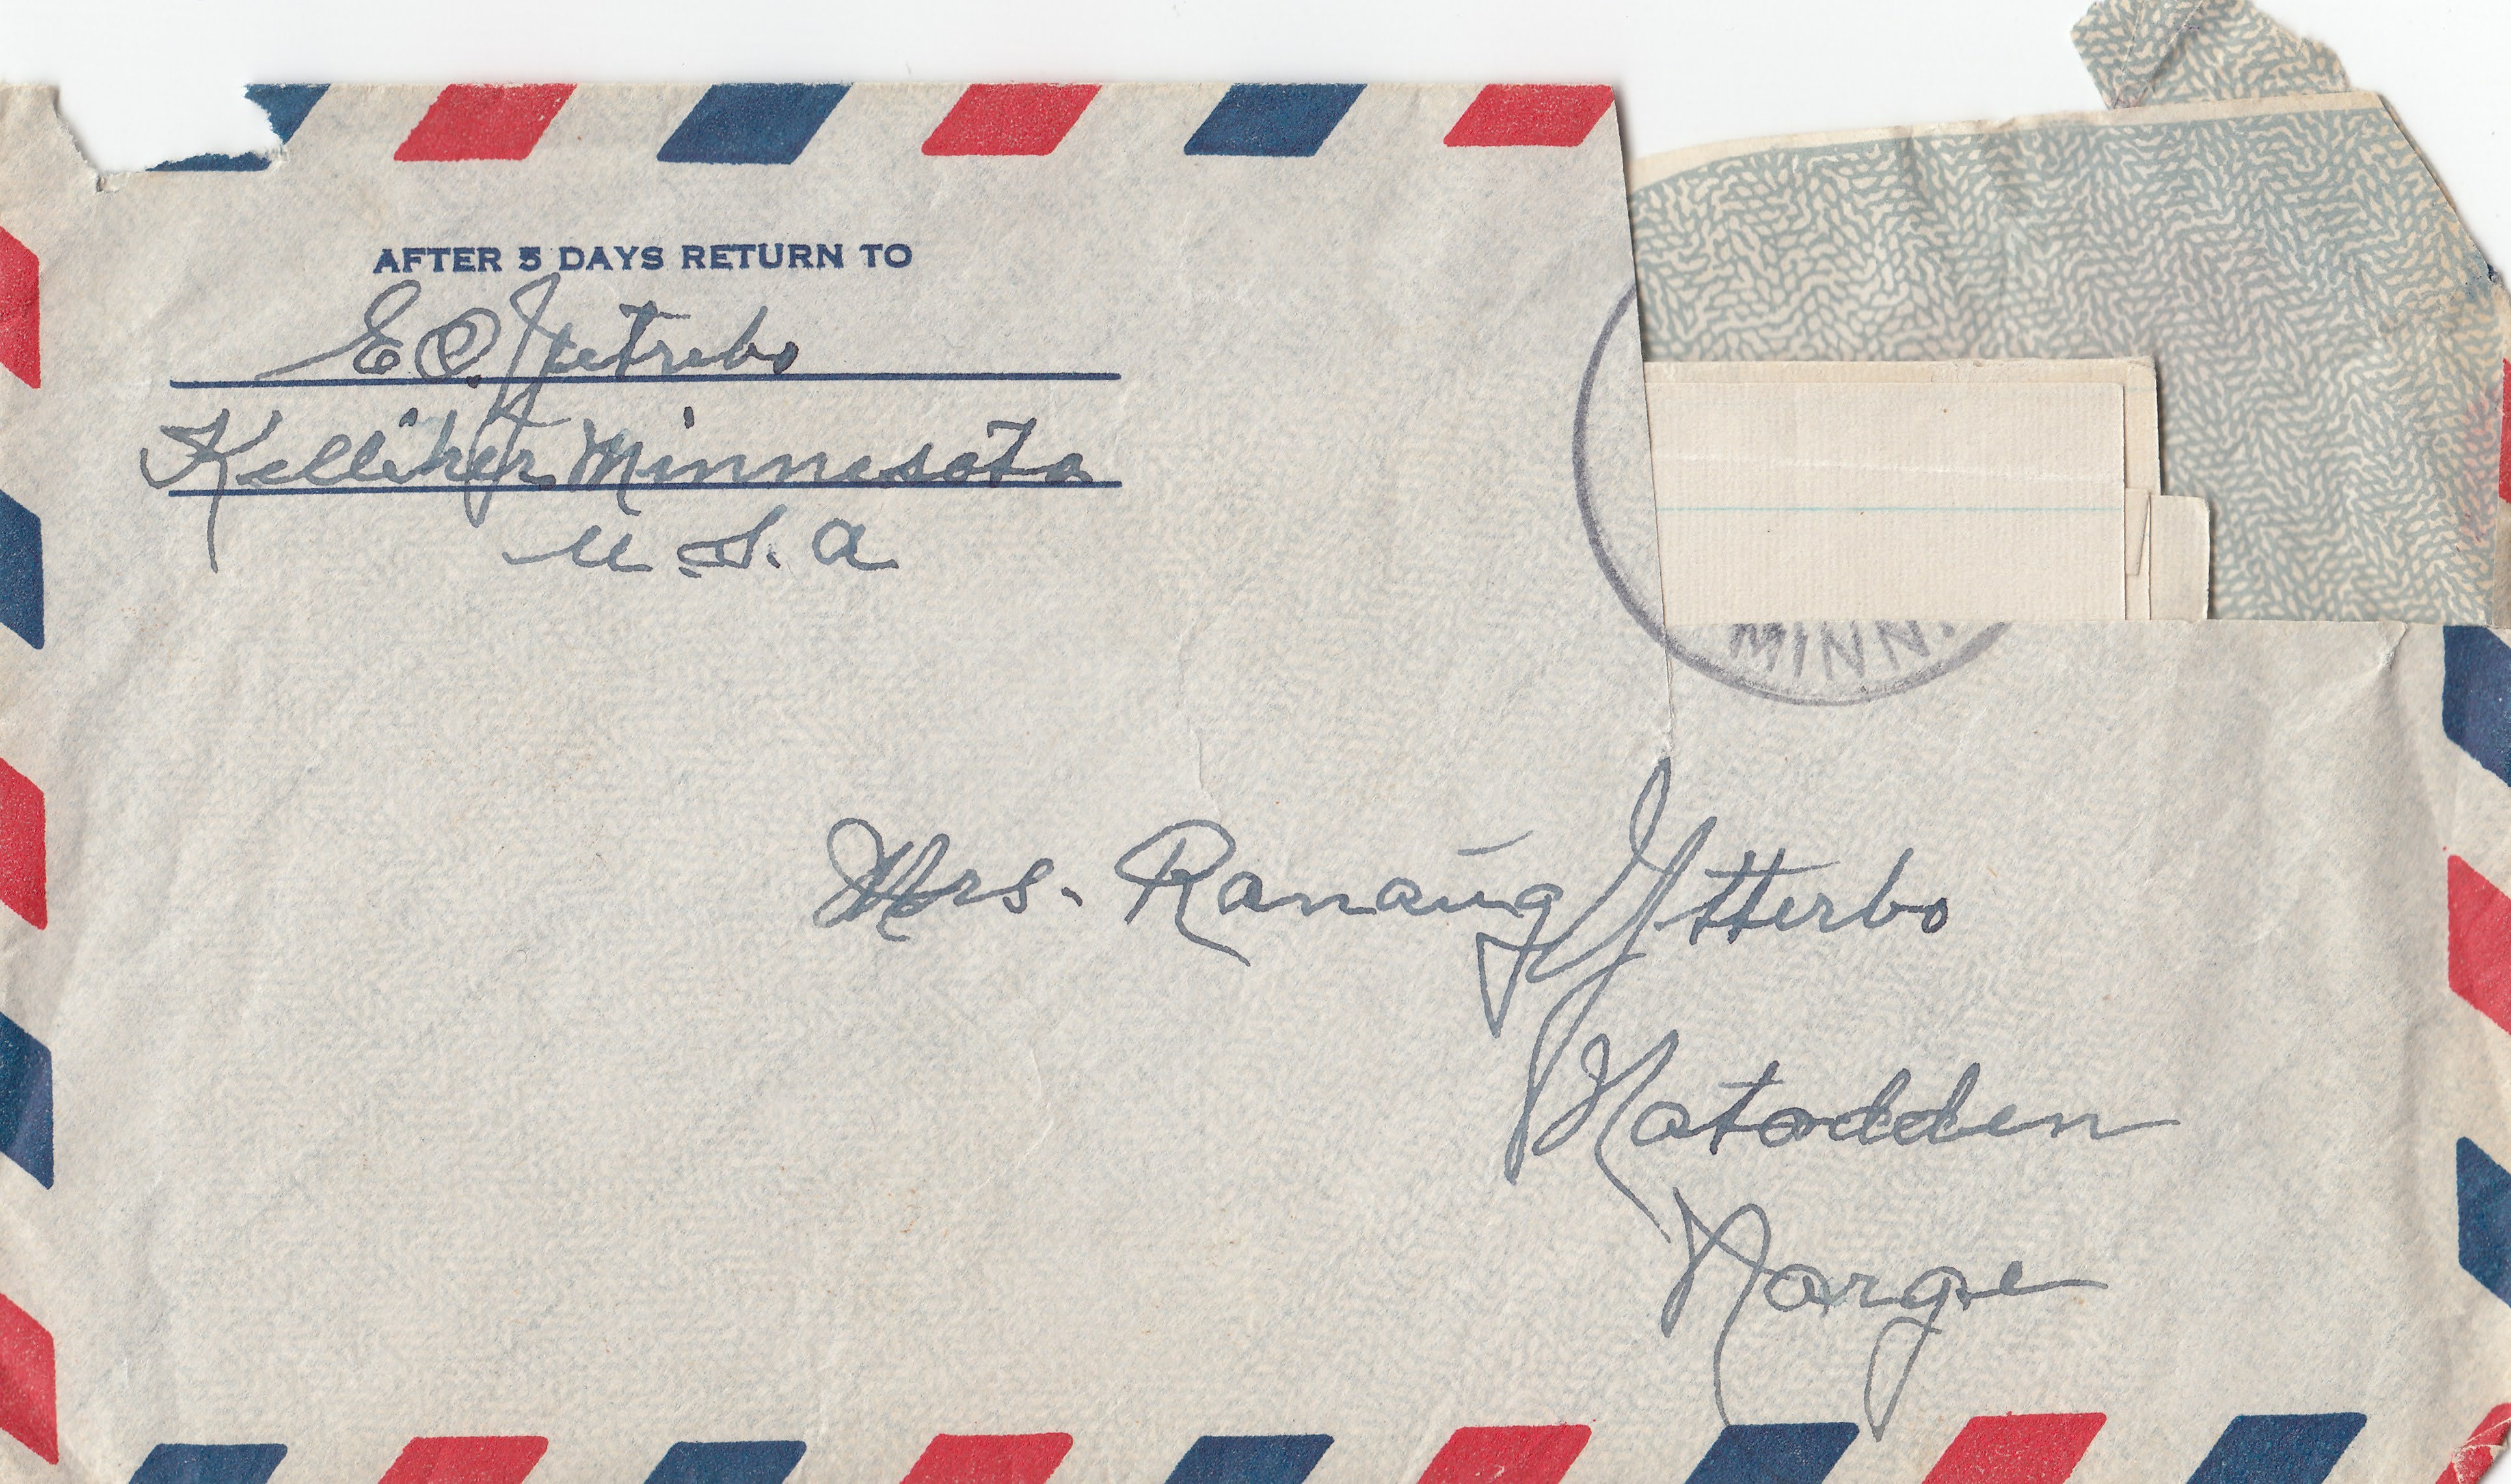 AFTER 5 DAYS RETURN TO
E.O. Ytetrebo
Kelliher Minnesota
U.S.A
MINN.
Mrs. Ranaug Ytterbo
Notodden
Norge